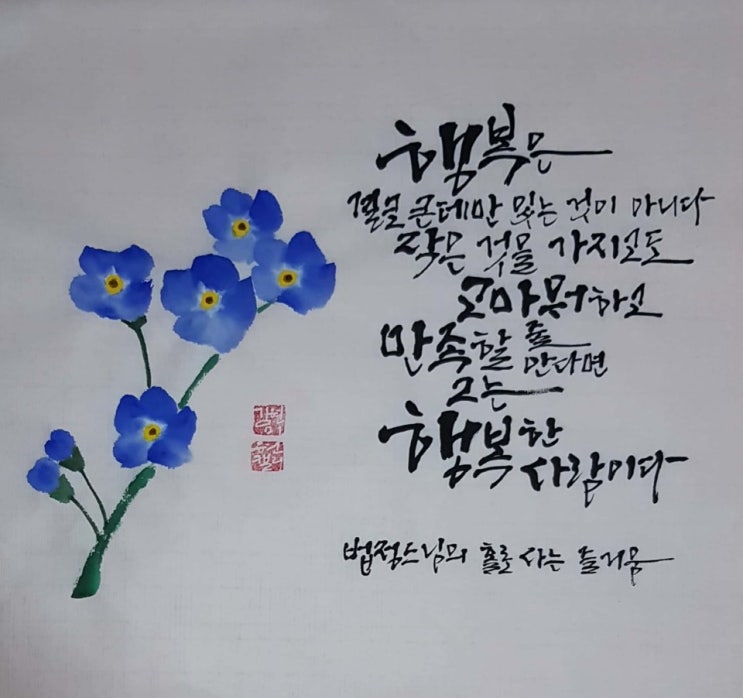 행복은
결코 큰데만 있는 것이 아니다
작은 것을 가지고도
고마워하고
만족할 줄
안다면
그는
행복한
사람이다
법정스님의 홀로 사는 즐거움